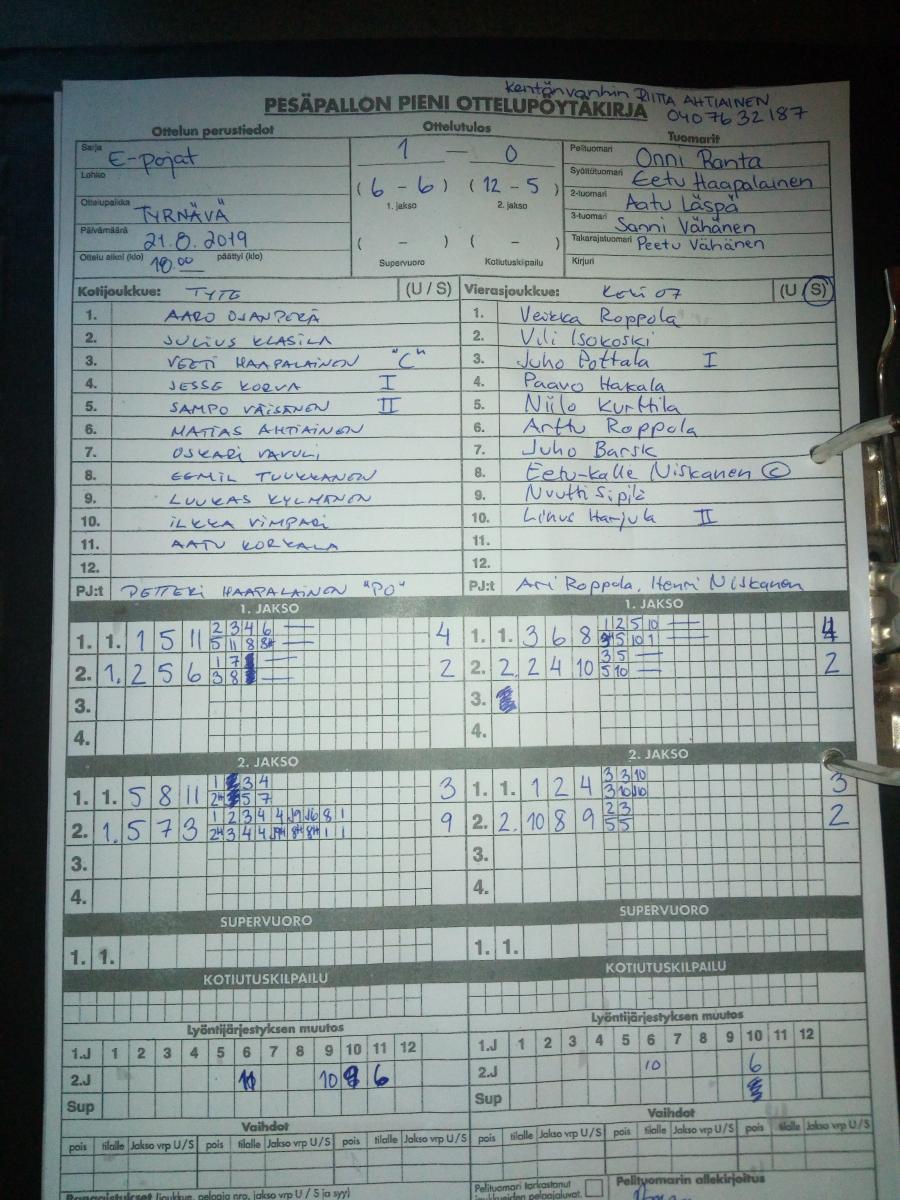 Kentänvanhin RIITTA AHTIAINEN
PESÄPALLON PIENI OTTELUPÖYTÄKIRJA 0407632187
Ottelun perustiedot Ottelutulos Tuomarit
Sarja E-pojat 1 — 0 Pelituomari Onni Ranta
Lohko (6 - 6) (12 - 5) Syöttötuomari Eetu Haapalainen
1. jakso 2. jakso
Ottelupaikka TYRNÄVÄ 2-tuomari Aatu Läspä
3-tuomari Sanni Vähänen
Päivämäärä 21.8.2019 ( - ) ( - ) Takarajatuomari Peetu Vähänen
Ottelu alkoi (klo) 18.00 päättyi (klo) Supervuoro Kotiutuskilpailu Kirjuri
Kotijoukkue: TYTE (U / S) Vierasjoukkue: Keki 07 (U / S)
1. AARO OJANPERÄ 1. Veikka Roppola
2. JULIUS KLASILA 2. Vili Isokoski
3. VEETI HAAPALAINEN "C" 3. Juho Pottala I
4. JESSE KORVA I 4. Paavo Hakala
5. SAMPO VÄISÄNEN II 5. Niilo Kurttila
6. MATIAS AHTIAINEN 6. Arttu Roppola
7. OSKARI VAVULI 7. Juho Barsk
8. EEMIL TUUKKANEN 8. Eetu-Kalle Niskanen C
9. LUUKAS KYLMÄNEN 9. Nuutti Sipilä
10. ILKKA VIMPARI 10. Linus Harjula II
11. AATU KORKALA 11.
12. 12.
PJ:t PETTERI HAAPALAINEN "PO" PJ:t Ari Roppola, Henri Niskanen
1. JAKSO 1. JAKSO
2 3 4 6 1 2 5 10
1. 1. 1 5 11 5 11 8 4 1. 1. 3 6 8 5 10 1 4
1 7 3 5
2. 1. 2 5 6 3 8 2 2. 2. 2 4 10 5 10 2
3. 3.
4. 4.
2. JAKSO 2. JAKSO
1 3 4 3 3 10
1. 1. 5 8 11 5 7 3 1. 1. 1 2 4 3 10 10 3
1 2 3 4 4 8 1 2 3
2. 1. 5 7 3 3 4 4 1 1 9 2. 2. 10 8 9 5 5 2
3. 3.
4. 4.
SUPERVUORO SUPERVUORO
1. 1. 1. 1.
KOTIUTUSKILPAILU KOTIUTUSKILPAILU
Lyöntijärjestyksen muutos Lyöntijärjestyksen muutos
1.J 1 2 3 4 5 6 7 8 9 10 11 12 1.J 1 2 3 4 5 6 7 8 9 10 11 12
2.J 11 10 9 6 2.J 10 6
Sup Sup
Vaihdot Vaihdot
pois tilalle Jakso vrp U / S pois tilalle Jakso vrp U / S pois tilalle Jakso vrp U / S pois tilalle Jakso vrp U / S pois tilalle Jakso vrp U / S pois tilalle Jakso vrp U / S
Rangaistukset (joukkue, pelaaja nro, jakso vrp U / S ja syy) Pelituomari tarkastanut Pelituomarin allekirjoitus
joukkueiden pelaajaluvat.